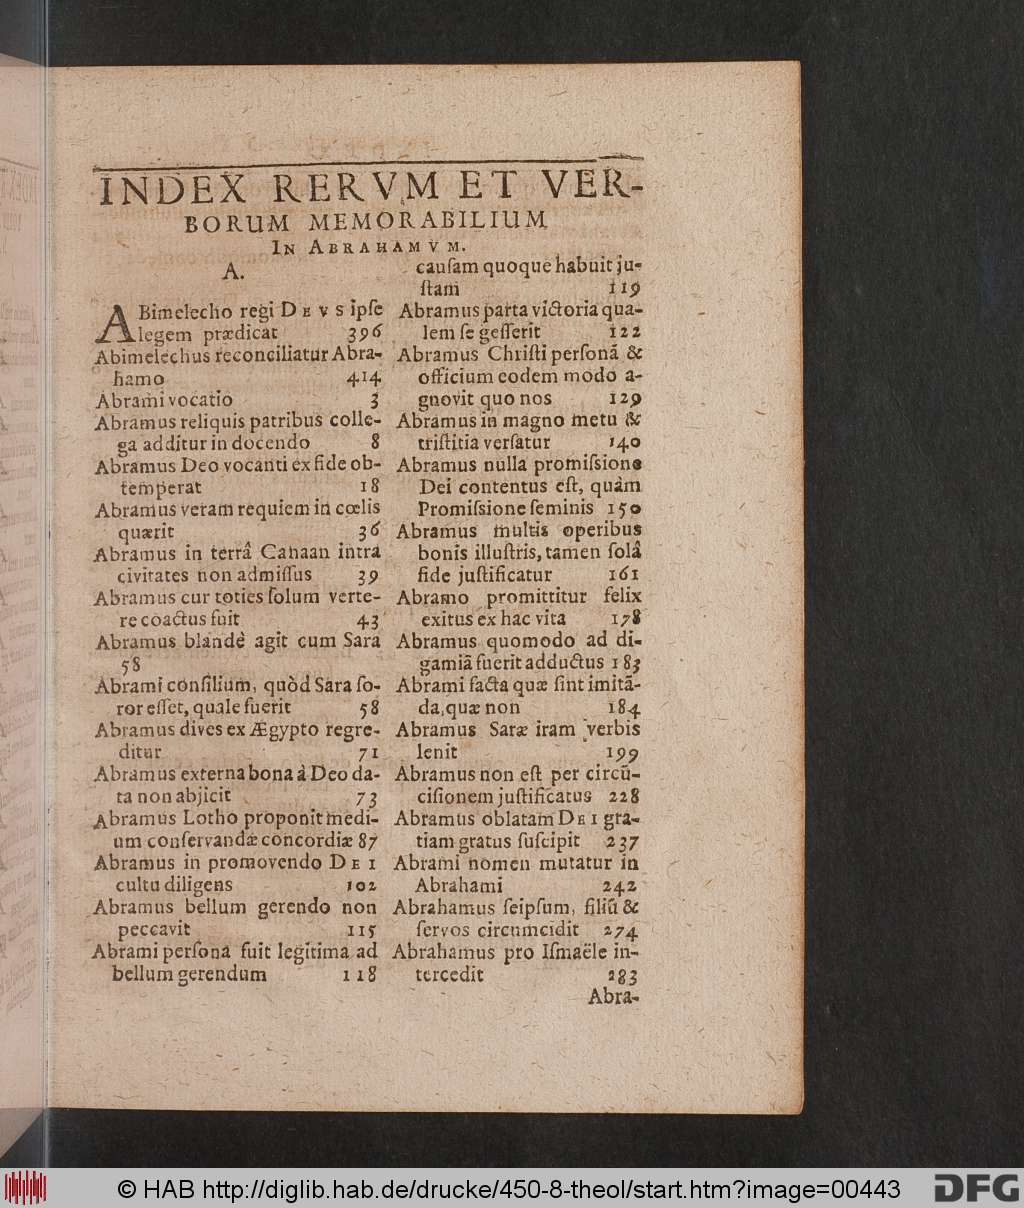 INDEX RERVM ET VER-
BORUM MEMORABILIUM
IN ABRAHAMVM.
A.
ABimelecho regi DEVS ipſe
legem prædicat 396
Abimelechus reconciliatur Abra-
hamo 414
Abrami vocatio 3
Abramus reliquis patribus colle-
ga additur in docendo 8
Abramus Deo vocanti ex fide ob-
temperat 18
Abramus veram requiem in cœlis
quærit 36
Abramus in terrâ Canaan intra
civitates non admiſſus 39
Abramus cur toties ſolum verte-
re coactus fuit 43
Abramus blandè agit cum Sara
58
Abrami conſilium, quòd Sara ſo-
ror eſſet, quale fuerit 58
Abramus dives ex Ægypto regre-
ditur 71
Abramus externa bona à Deo da-
ta non abjicit 73
Abramus Lotho proponit medi-
um conſervandæ concordiæ 87
Abramus in promovendo DEI
cultu diligens 102
Abramus bellum gerendo non
peccavit 115
Abrami perſona fuit legitima ad
bellum gerendum 118
cauſam quoque habuit ju-
ſtam 119
Abramus parta victoria qua-
lem ſe geſſerit 122
Abramus Chriſti perſonã &
officium eodem modo a-
gnovit quo nos 129
Abramus in magno metu &
triſtitia verſatur 140
Abramus nulla promiſsione
Dei contentus eſt, quàm
Promiſsione ſeminis 150
Abramus multis operibus
bonis illuſtris, tamen ſolâ
fide juſtificatur 161
Abramo promittitur felix
exitus ex hac vita 178
Abramus quomodo ad di-
gamiã fuerit adductus 183
Abrami facta quæ ſint imitã-
da, quæ non 184
Abramus Saræ iram verbis
lenit 199
Abramus non eſt per circũ-
ciſionem juſtificatus 228
Abramus oblatam DEI gra-
tiam gratus ſuſcipit 237
Abrami nomen mutatur in
Abrahami 242
Abrahamus ſeipſum, filiũ &
ſervos circumcidit 274
Abrahamus pro Iſmaële in-
tercedit 283
Abra-
© HAB http://diglib.hab.de/drucke/450-8-theol/start.htm?image=00443
DFG